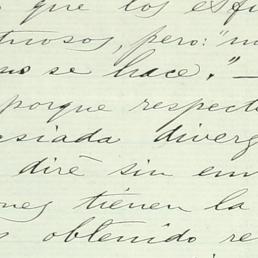 que los esfu
tuosos, pero: "no
se hace." —
porque respecto
asiada diverg
dirè sin em
ones tienen la
obtenido re